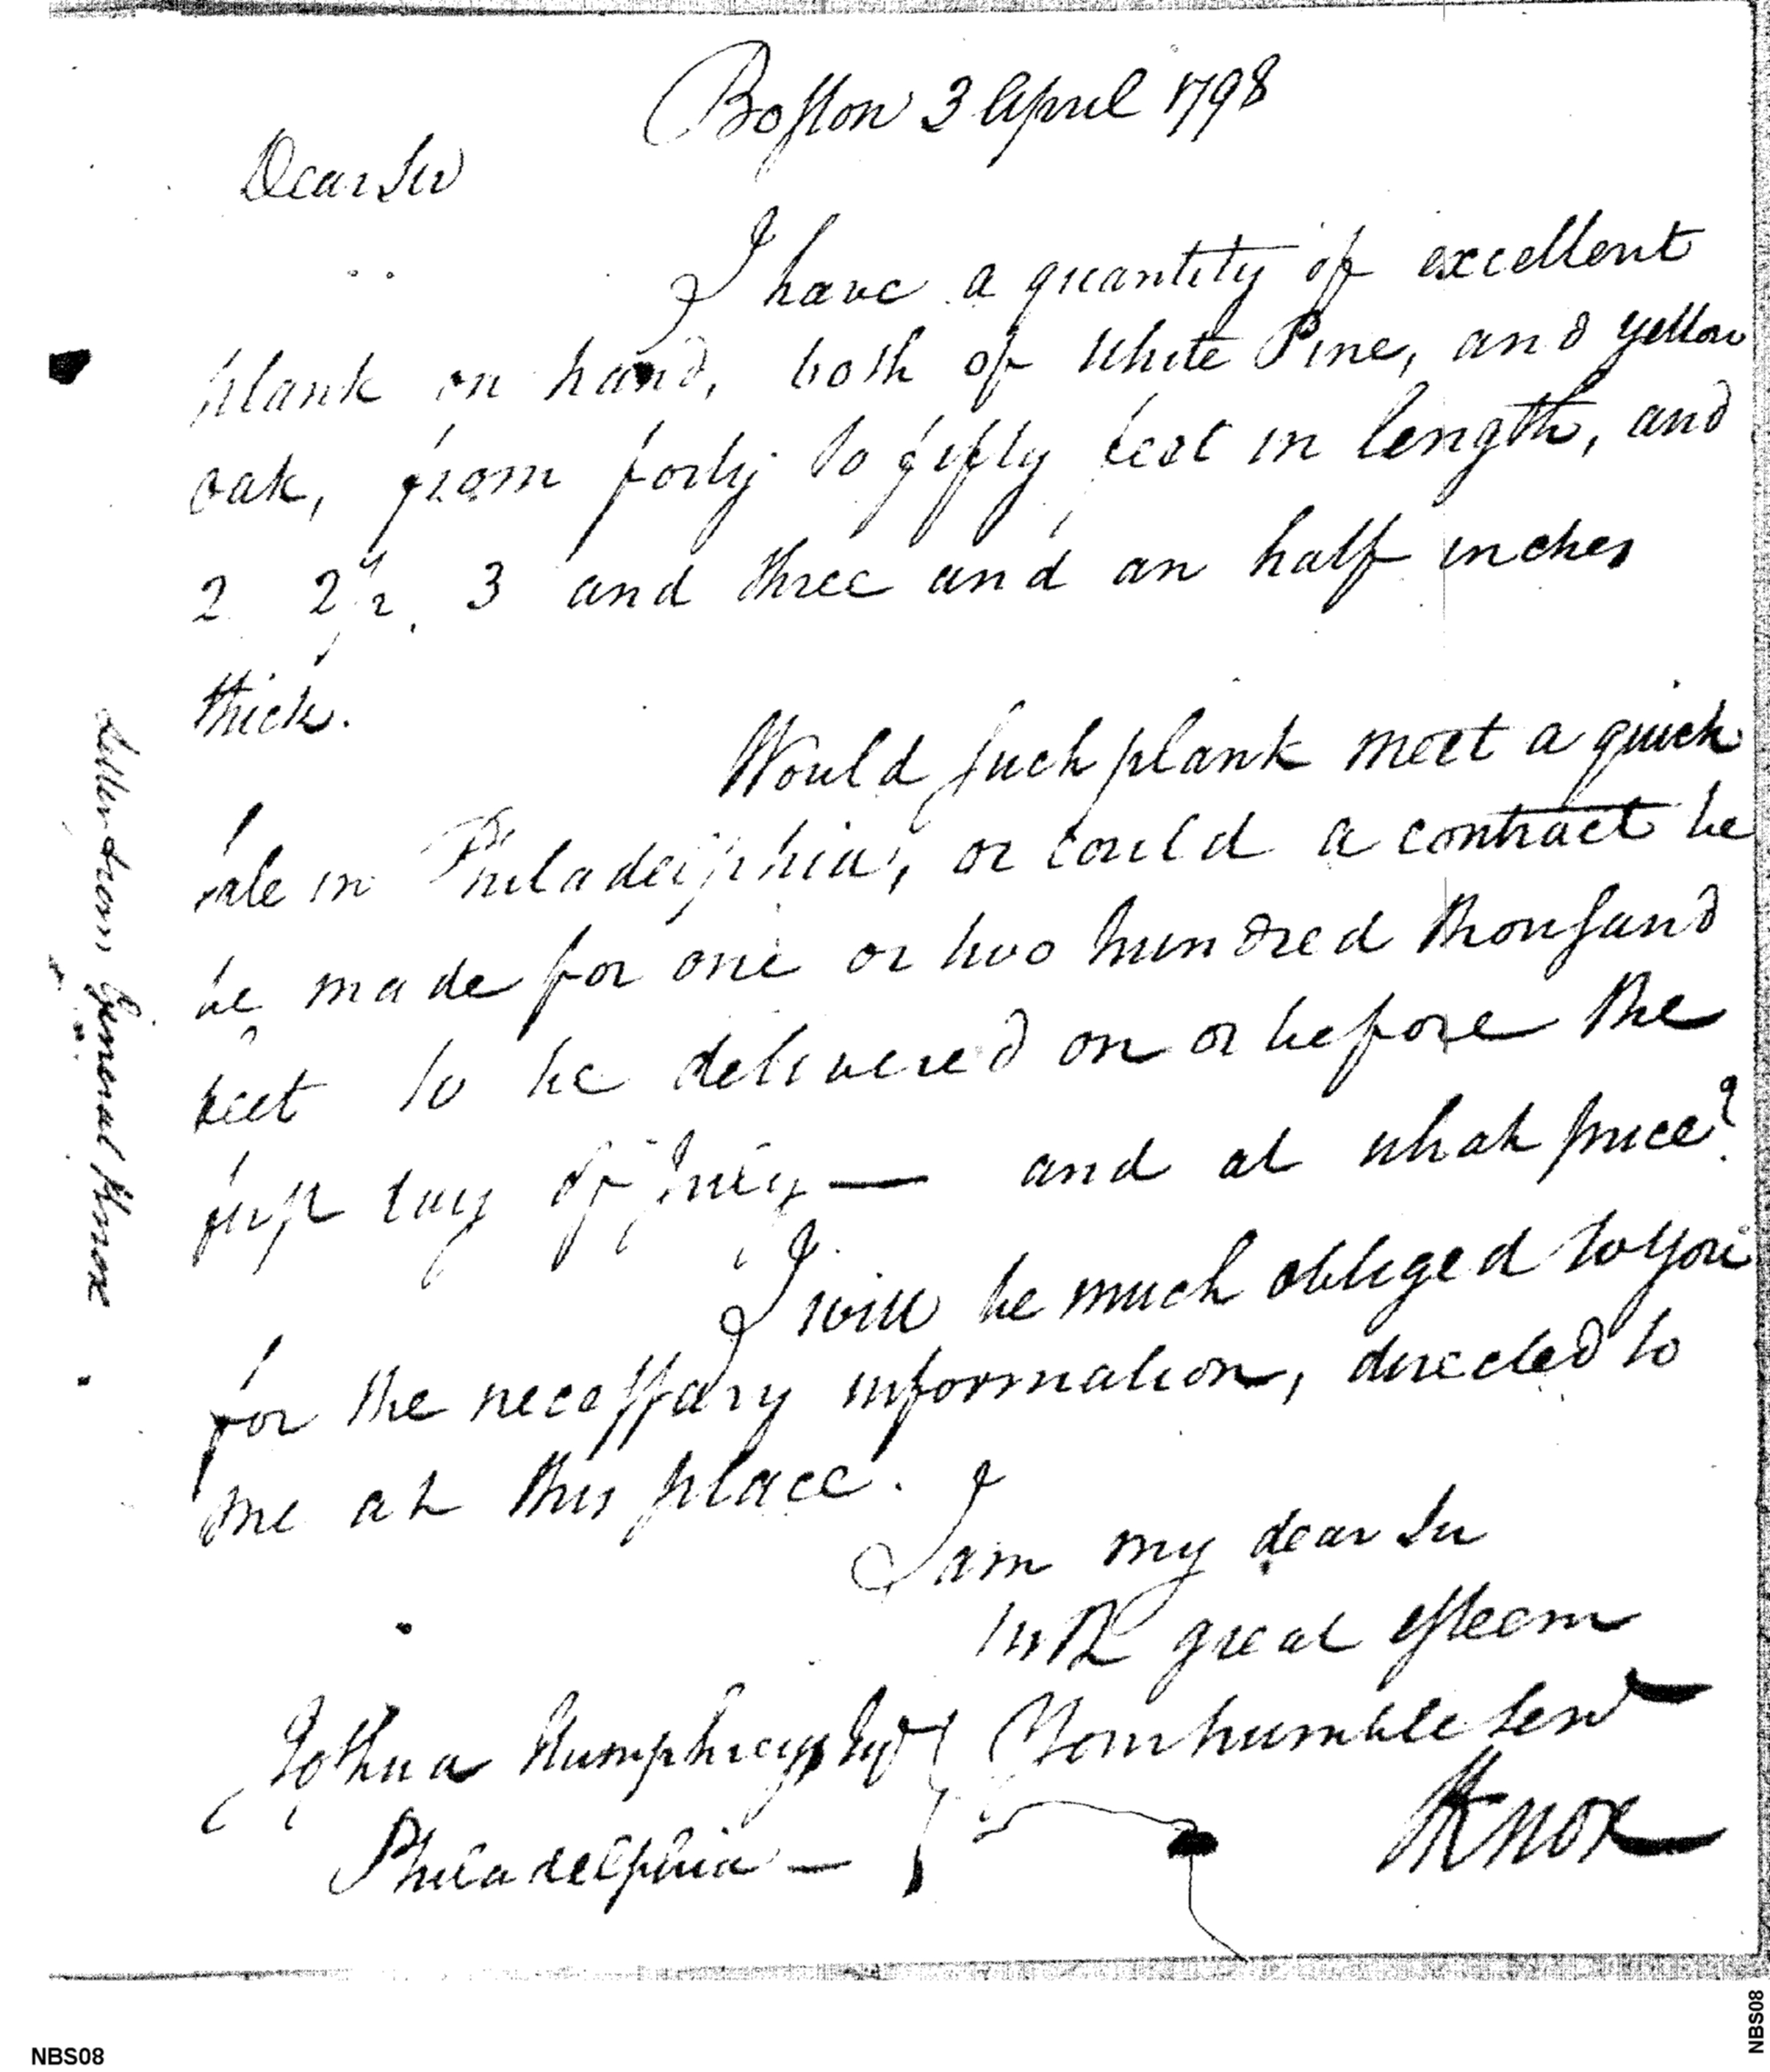 Boston 3 April 1798
Dear Sir
I have a quantity of excellent
plank on hand, both of White Pine, and yellow
oak, from forty to fifty feet in length, and
2 2 1/2, 3 and three and an half inches
thick.
Would such plank meet a quick
sale in Philadelphia, or could a contract be
be made for one or two hundred thousand
feet to be delivered on or before the
first day of July — and at what price?
I will be much obliged to you
for the necessary information, directed to
me at this place.
I am my dear Sir
with great esteem
Your humble Servt
Knox
Joshua Humphreys Esqr
Philadelphia —
Letter from General Knox
NBS08
NBS08